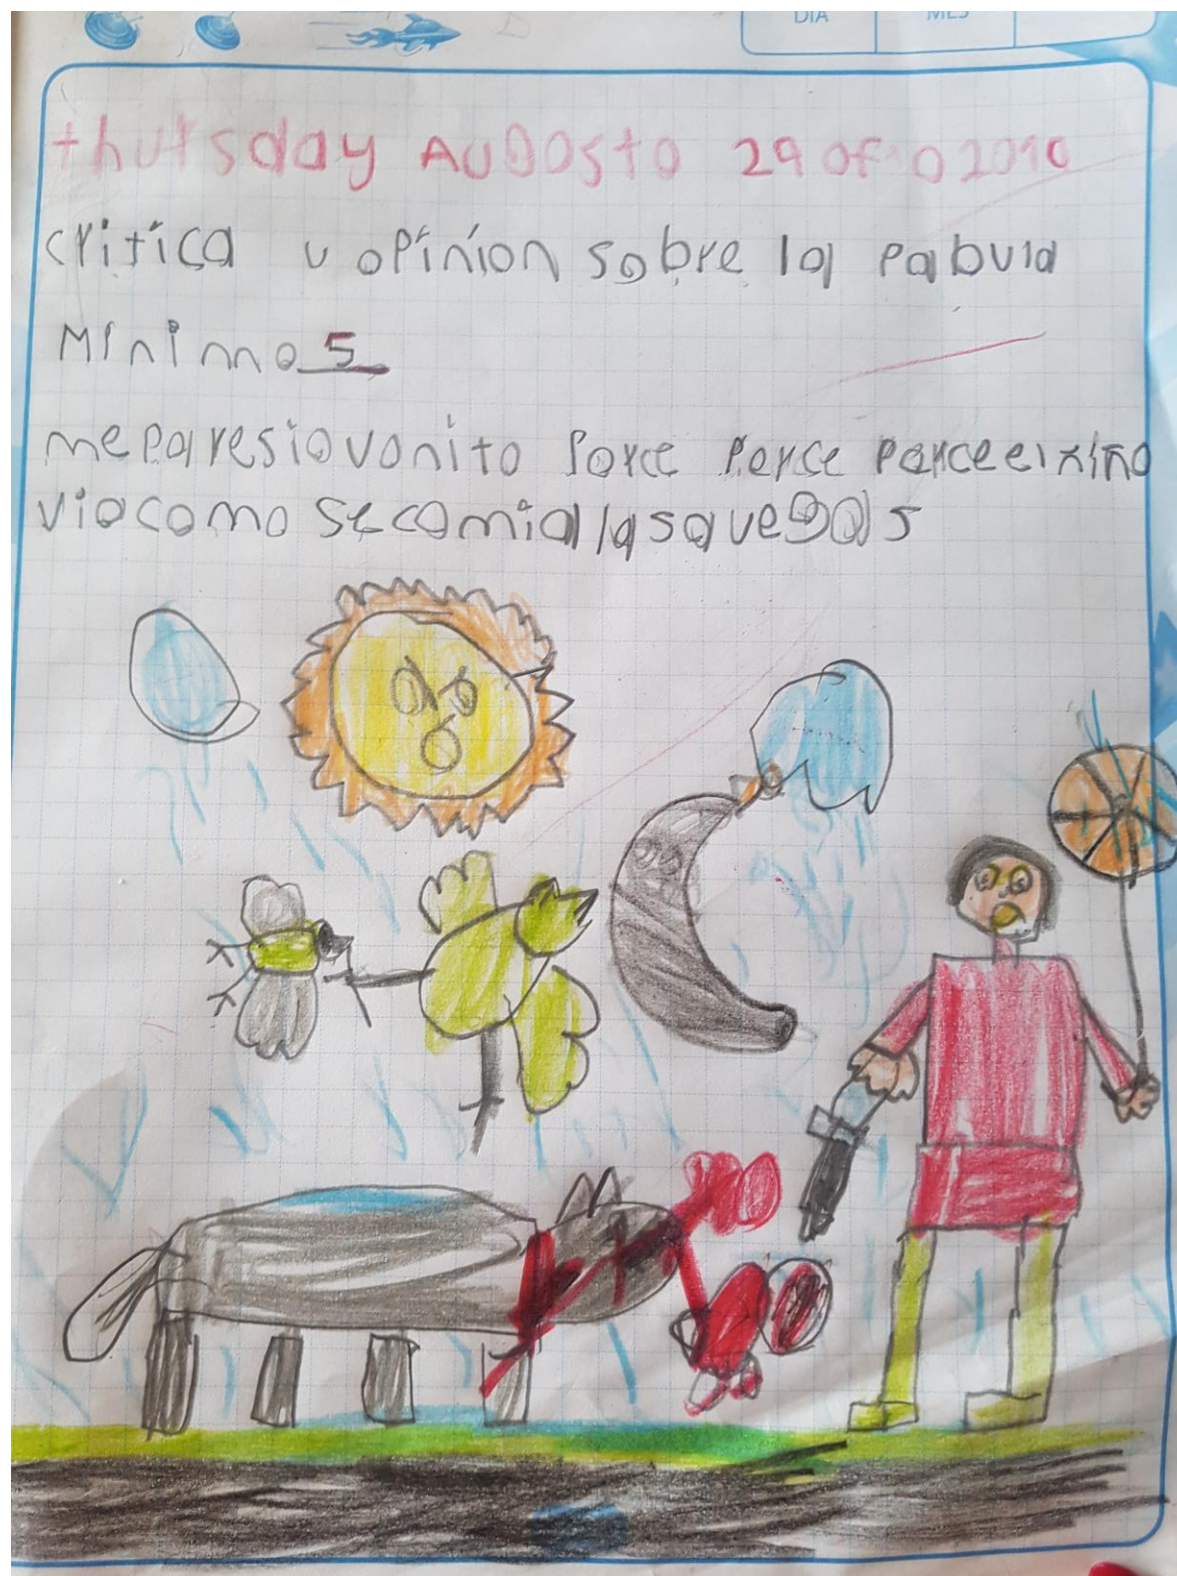 DIA MES
thursday AUGOSTO 29 OF 02010
critica y opinion sobre la pabula
Minimo 5
me paresio vonito porce perce perce el niño
vio como se comia las ave gas